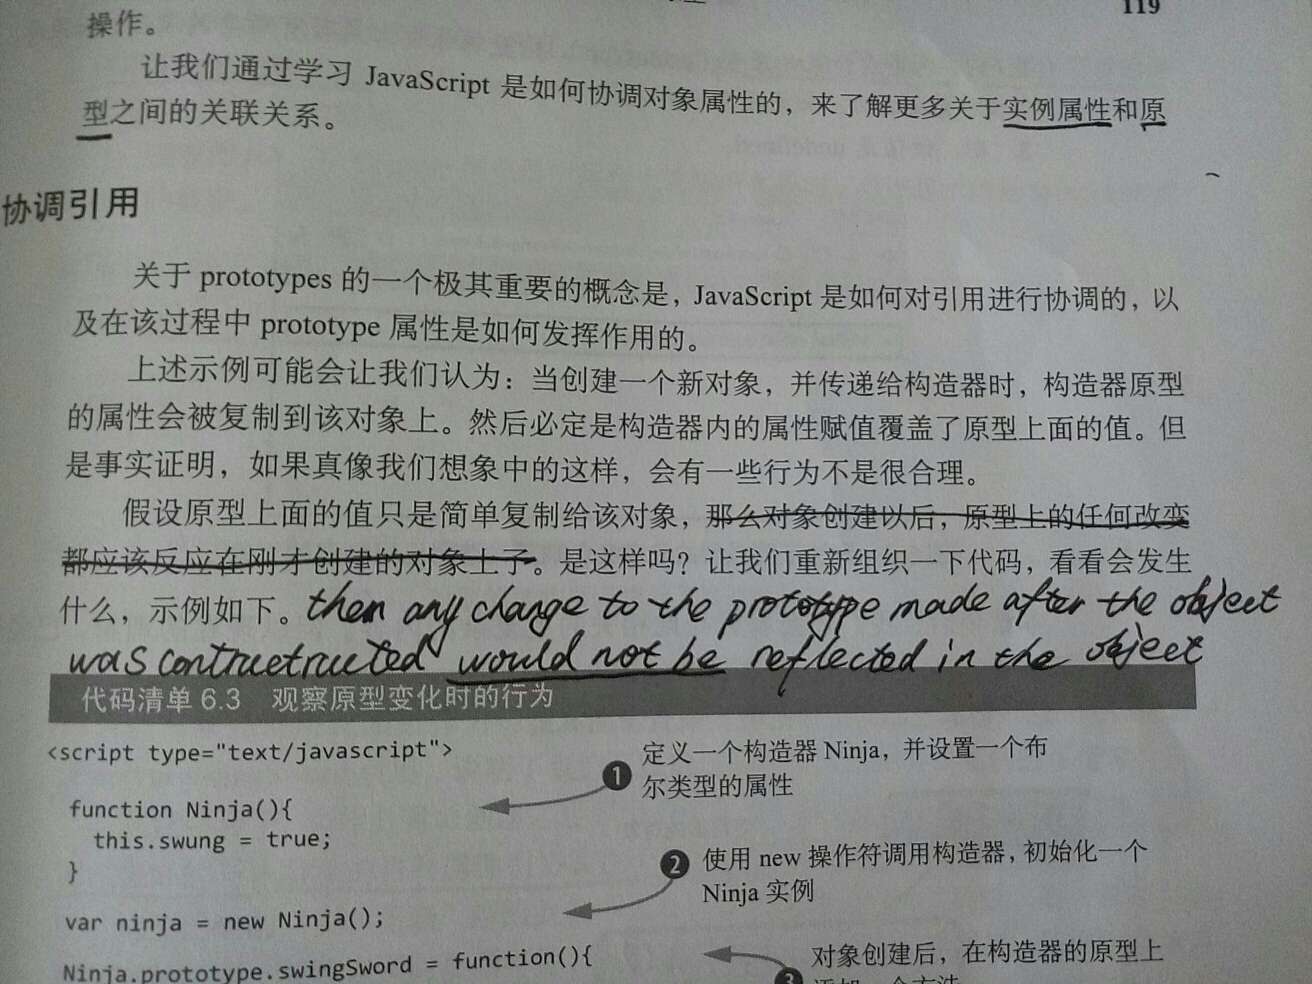 119
操作。
让我们通过学习 JavaScript 是如何协调对象属性的，来了解更多关于实例属性和原
型之间的关联关系。
协调引用
关于 prototypes 的一个极其重要的概念是，JavaScript 是如何对引用进行协调的，以
及在该过程中 prototype 属性是如何发挥作用的。
上述示例可能会让我们认为：当创建一个新对象，并传递给构造器时，构造器原型
的属性会被复制到该对象上。然后必定是构造器内的属性赋值覆盖了原型上面的值。但
是事实证明，如果真像我们想象中的这样，会有一些行为不是很合理。
假设原型上面的值只是简单复制给该对象，那么对象创建以后，原型上的任何改变
都应该反应在刚才创建的对象上了。是这样吗？让我们重新组织一下代码，看看会发生
什么，示例如下。then any change to the prototype made after the object
was contructructed would not be reflected in the object
代码清单 6.3 观察原型变化时的行为
<script type="text/javascript">
定义一个构造器 Ninja，并设置一个布
1
尔类型的属性
function Ninja(){
this.swung = true;
}
2 使用 new 操作符调用构造器，初始化一个
Ninja 实例
var ninja = new Ninja();
Ninja.prototype.swingSword = function(){
对象创建后，在构造器的原型上
3